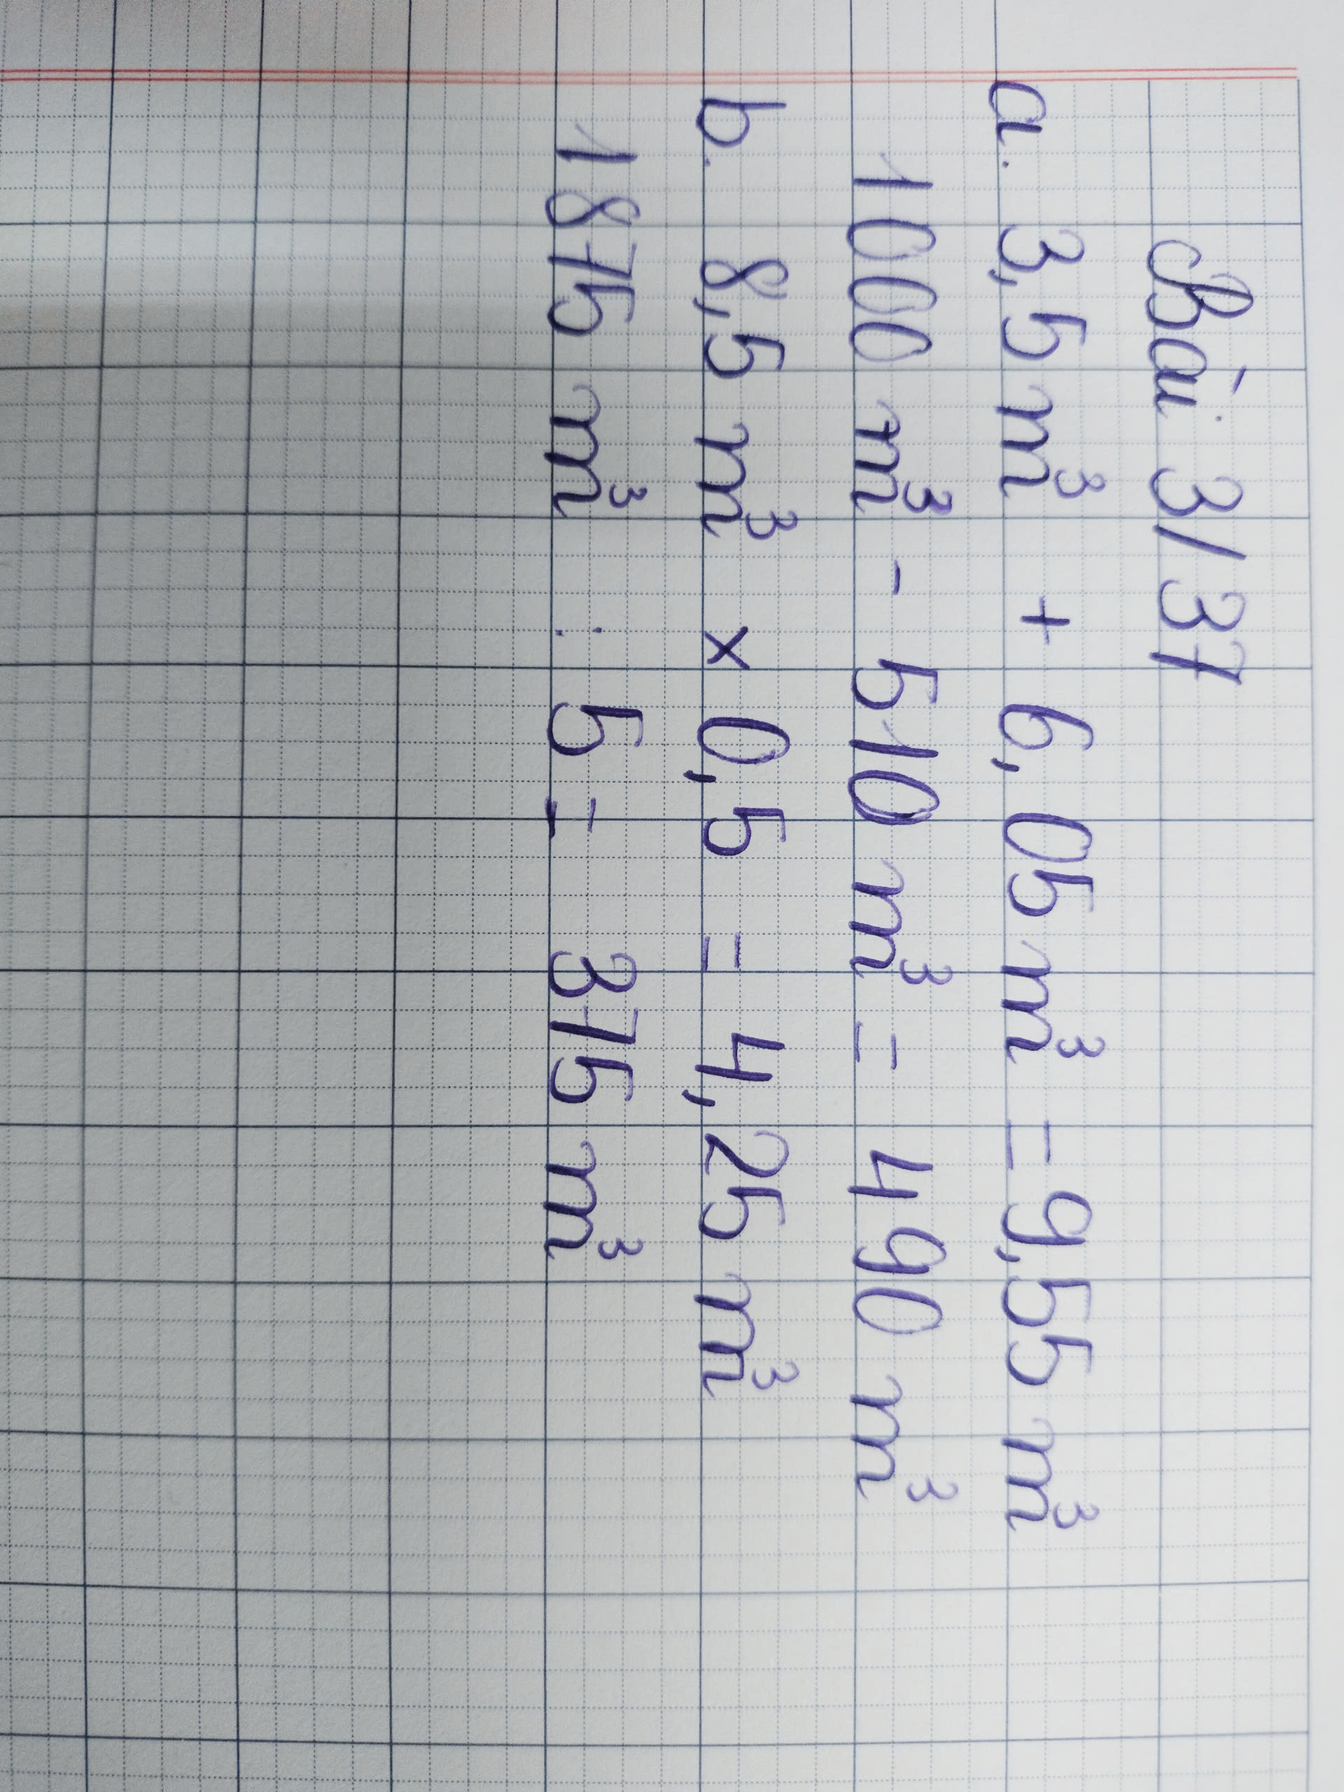 Bài 3/37
a. 3,5 m³ + 6,05 m³ = 9,55 m³
1000 m³ - 510 m³ = 490 m³
b. 8,5 m³ x 0,5 = 4,25 m³
1875 m³ : 5 = 375 m³